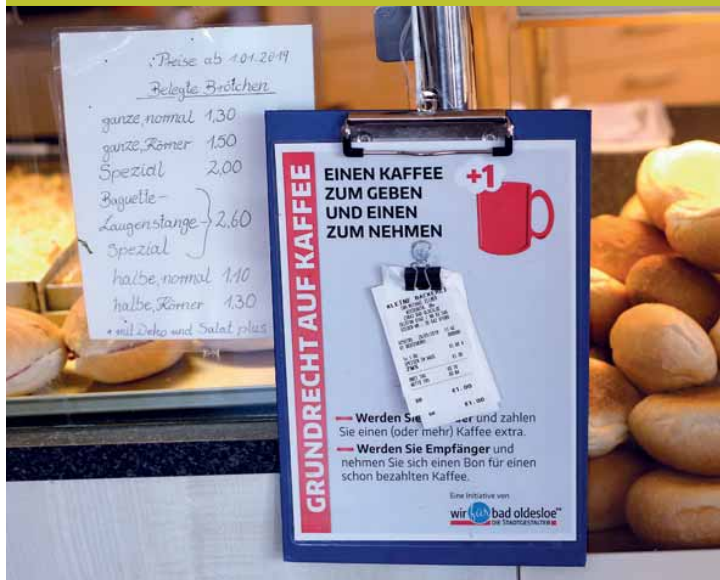 Preise ab 1.01.2019
Belegte Brötchen
ganze, normal 1,30
ganze, Körner 1,50
Spezial 2,00
Baguette-
Laugenstange 2,60
Spezial
halbe, normal 1,10
halbe, Körner 1,30
mit Deko und Salat plus
GRUNDRECHT AUF KAFFEE
EINEN KAFFEE
ZUM GEBEN
UND EINEN
ZUM NEHMEN
+1
KLEINE BÄCKEREI
€1.00
€1.00
Werden Sie und zahlen
Sie einen (oder mehr) Kaffee extra.
Werden Sie Empfänger und
nehmen Sie sich einen Bon für einen
schon bezahlten Kaffee.
Eine Initiative von
wir für bad oldesloe
DIE STADTGESTALTER